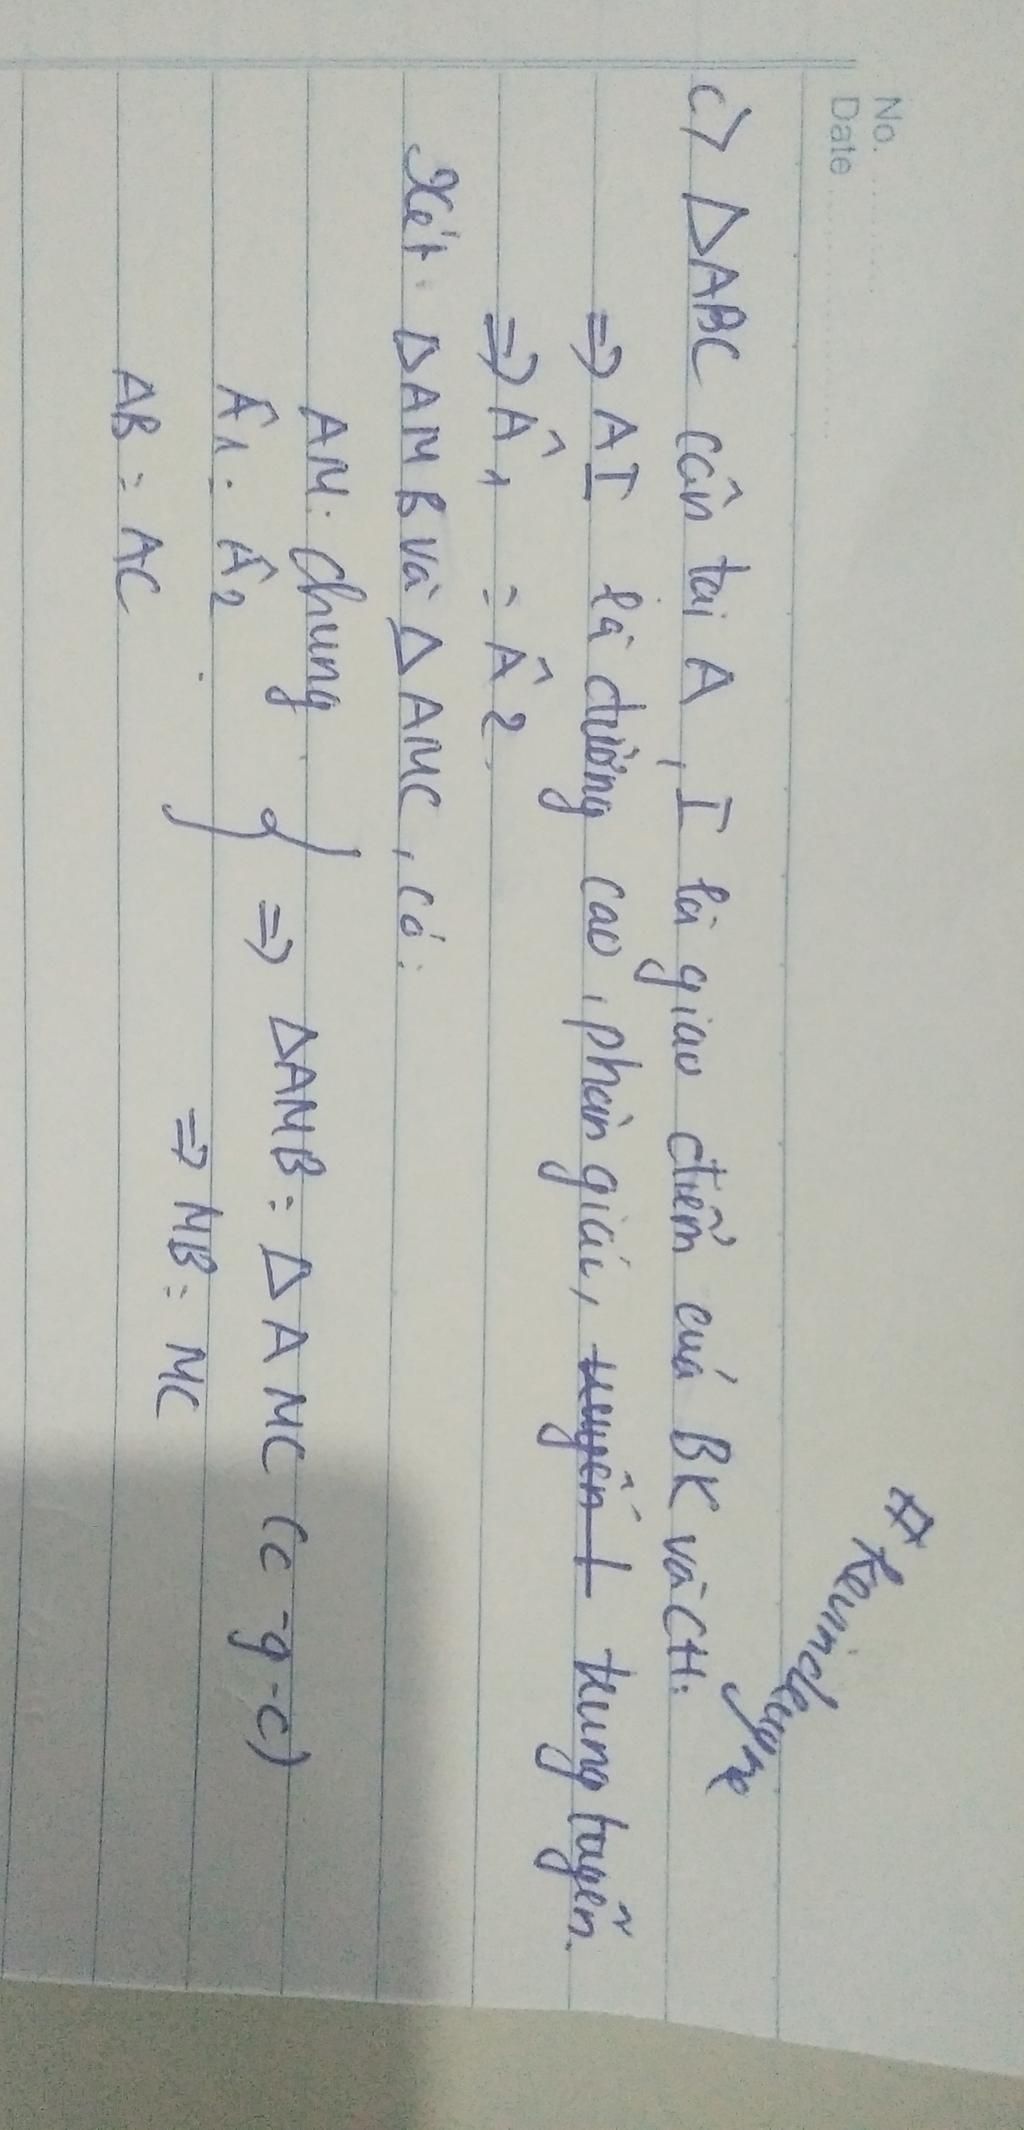 No.
Date
#Keunideyne
c) ΔABC cân tại A, I là giao điểm cuả BK và CH.
=> AI là đường cao, phân giác, trung tuyến.
=> Â1 = Â2.
Xét ΔAMB và ΔAMC, có:
AM: chung
Â1 = Â2
AB = AC
=> ΔAMB = ΔAMC (c-g-c)
=> MB = MC